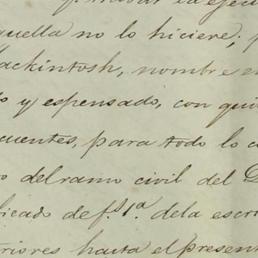 quella no lo hiciere; p
ackintosh, nombre en
y espensado, con qui
cuentes, para todo lo c
del ramo civil del D
licado de f.s 1.a de la escri
riores hasta el presen